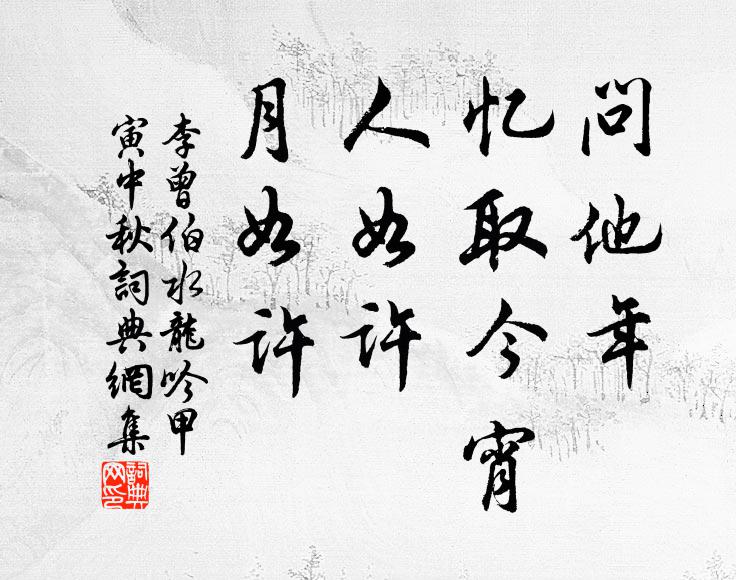 問他年
忆取今宵
人如许
月如许
李曾伯水龍吟甲
寅中秋詞典網集
詞典网印